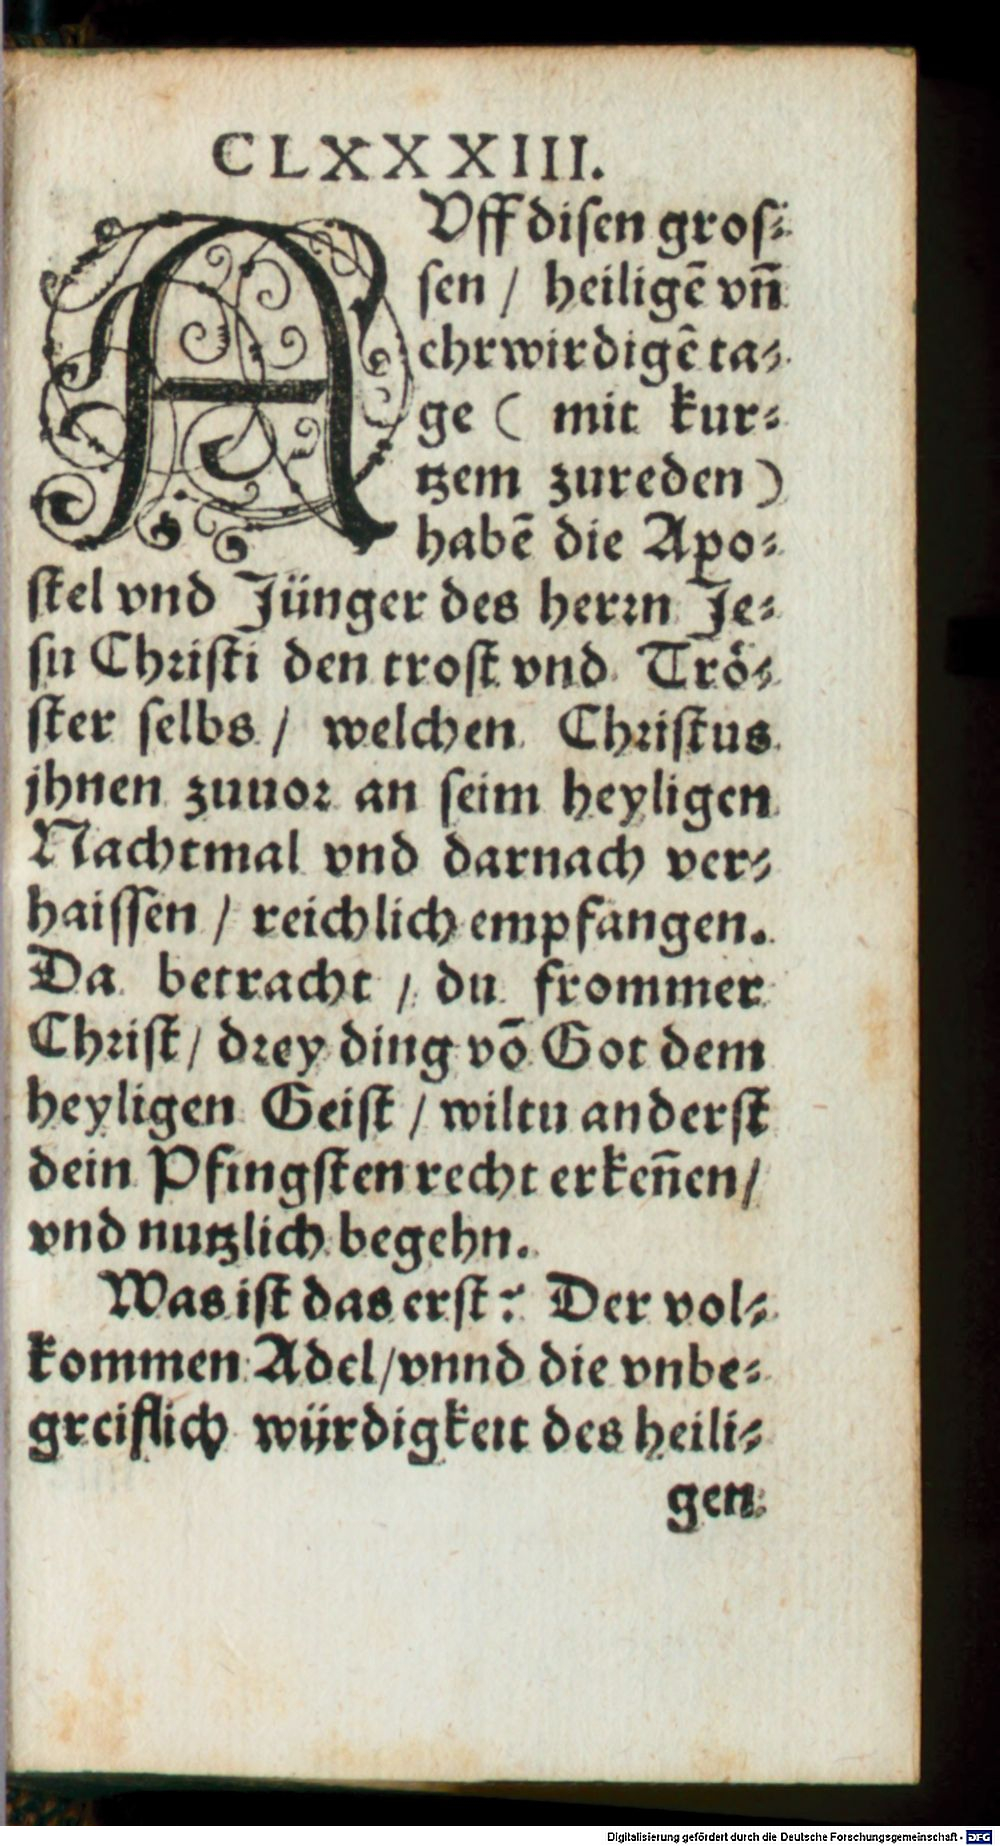 CLXXXIII.
AVff disen gros⸗
sen / heiligē vn̄
ehrwirdigē ta⸗
ge ( mit kur⸗
tzem zureden )
habē die Apo⸗
stel vnd Jünger des herrn Je⸗
su Christi den trost vnd Trö⸗
ster selbs / welchen Christus
jhnen zuuor an seim heyligen
Nachtmal vnd darnach ver⸗
haissen / reichlich empfangen.
Da betracht / du frommer
Christ / drey ding vō Got dem
heyligen Geist / wiltu anderst
dein Pfingsten recht erkeñen /
vnd nutzlich begehn.
Was ist das erst? Der vol⸗
kommen Adel / vnnd die vnbe⸗
greiflich würdigkeit des heili⸗
gen
Digitalisierung gefördert durch die Deutsche Forschungsgemeinschaft - DFG